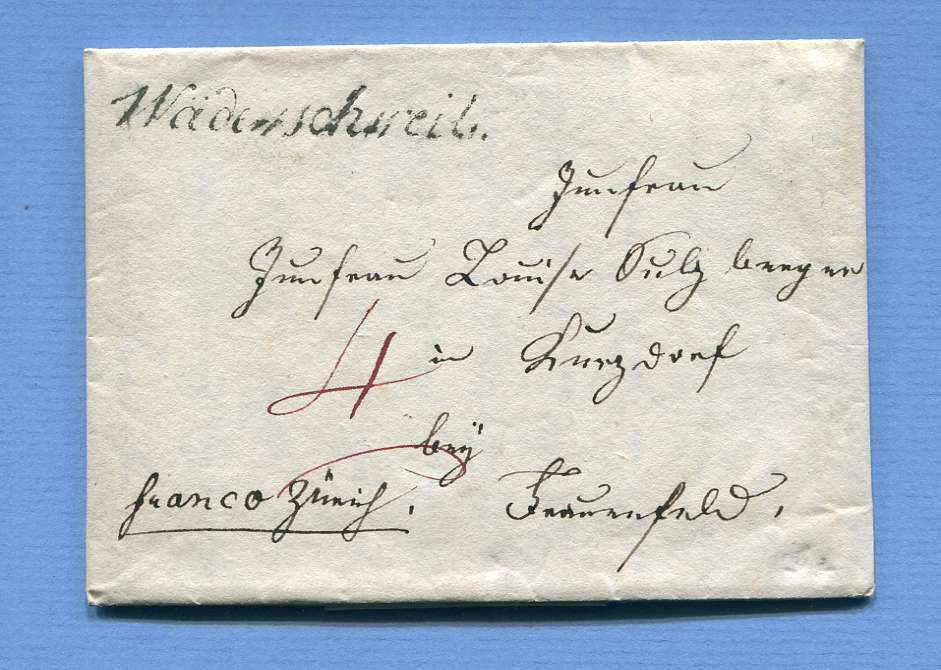 Wädenschweil.
Junfrau
Junfrau Louise Sulzberger
4 in Kurzdorf
bey
franco Zürich. Frauenfeld.